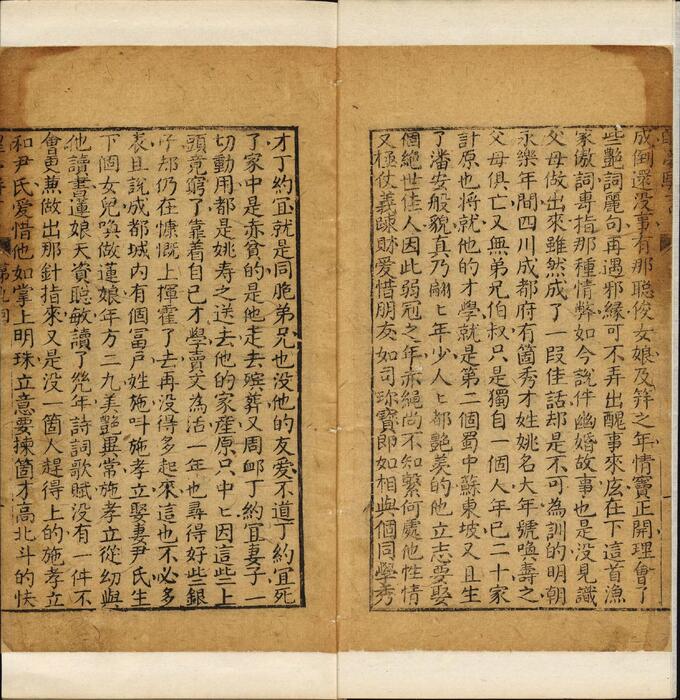 成倒還没事有那聪俊女娘及笄之年情竇正開理會了
些艷詞麗句再遇邪縁可不弄出醜事來庅在下這首漁
家傲詞専指那種情弊如今説件幽婚故事也是没見識
父母做出來雖然成了一叚佳話却是不可為訓的明朝
永樂年間四川成都府有箇秀才姓姚名大年號喚壽之
父母俱亡又無弟兄伯叔只是獨自一個人年已二十家
計原也將就他的才學就是第二個蜀中蘇東坡又且生
了潘安般貌真乃翩〻年少人〻都艷羡的他立志要娶
個絶世佳人因此弱冠之年赤繩尚不知繫何處他性情
又極仗義踈財愛惜朋友如司珎寶即如相與個同學秀
才丁約宜就是同胞弟兄也没他的友爱不道丁約宜死
了家中是赤貧的是他走去殯葬又周衂丁約宜妻子一
切動用都是姚寿之送去他的家産原只中〻因這些上
頭竟窮了靠着自己才學賣文為活一年也尋得好些銀
子却仍在慷慨上揮霍了去再没得多起來這也不必多
表且説成都城内有個冨戸姓施叫施孝立娶妻尹氏生
下個女兒喚做蓮娘年方二九美艷異常施孝立從幼與
他讀書蓮娘天資聪敏讀了幾年詩詞歌賦没有一件不
會更兼做出那針指來又是没一箇人趕得上的施孝立
和尹氏爱惜他如掌上明珠立意要揀箇才高北斗的快